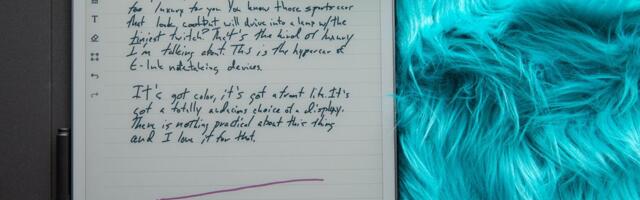 for luxury for you. You know those sports car
that look cool but will drive into a lamp w/ the
tiniest twitch? That's the kind of luxury
I'm talking about. This is the hypercar of
E-Ink notetaking devices.
It's got color, it's got a front light. It's
got a totally audacious choice of a display.
There is nothing practical about this thing
and I love it for that.